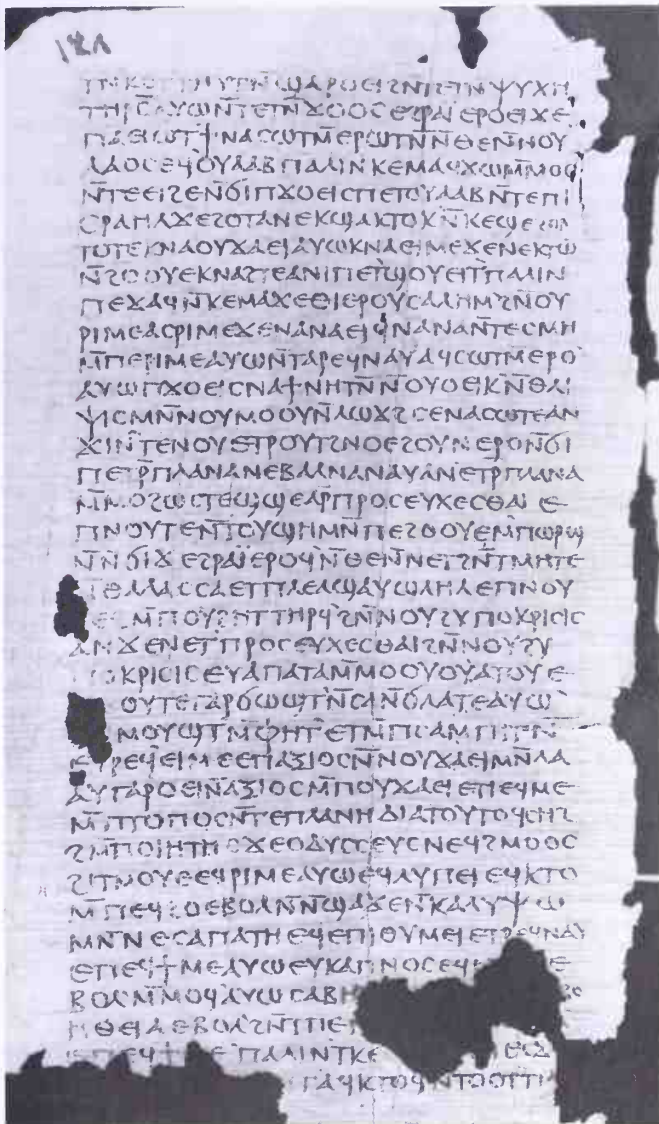 ⲧⲛ̄ⲕⲟⲧⲧⲏⲩⲧⲛ̄ϣⲁⲣⲟⲉⲓϩⲛ̄ⲧⲉⲧⲛ̄ⲯⲩⲭⲏ
ⲧⲏⲣⲥ̄ⲁⲩⲱⲛ̄ⲧⲉⲧⲛ̄ϫⲟⲟⲥⲉϩⲣⲁⲓ̈ⲉⲣⲟⲉⲓϫⲉ
ⲡⲁⲉⲓⲱⲧϯⲛⲁⲥⲱⲧⲙ̄ⲉⲣⲱⲧⲛ̄ⲛ̄ⲑⲉⲛ̄ⲛⲟⲩ
ⲗⲁⲟⲥⲉϥⲟⲩⲁⲁⲃⲡⲁⲗⲓⲛⲕⲉⲙⲁϥϫⲱⲙ̄ⲙⲟⲥ
ⲛ̄ⲧⲉⲉⲓϩⲉⲛ̄ϭⲓⲡϫⲟⲉⲓⲥⲡⲉⲧⲟⲩⲁⲁⲃⲛ̄ⲧⲉⲡⲓ
ⲥⲣⲁⲏⲗϫⲉϩⲟⲧⲁⲛⲉⲕϣⲁⲕⲧⲟⲕⲛ̄ⲕⲉϣⲉϩⲟⲙ
ⲧⲟⲧⲉⲕⲛⲁⲟⲩϫⲁⲉⲓⲁⲩⲱⲕⲛⲁⲉⲓⲙⲉϫⲉⲛⲉⲕⲧⲱ
ⲛ̄ϩⲟⲟⲩⲉⲕⲛⲁϩⲧⲉⲁⲛⲓⲡⲉⲧϣⲟⲩⲉⲓⲧʼⲡⲁⲗⲓⲛ
ⲡⲉϫⲁϥⲛ̄ⲕⲉⲙⲁϫⲉⲑⲓⲉⲣⲟⲩⲥⲁⲗⲏⲙϩⲛ̄ⲟⲩ
ⲣⲓⲙⲉⲁⲥⲣⲓⲙⲉϫⲉⲛⲁⲛⲁⲉⲓϥⲛⲁⲛⲁⲛ̄ⲧⲉⲥⲙⲏ
ⲙ̄ⲡⲉⲣⲓⲙⲉⲁⲩⲱⲛ̄ⲧⲁⲣⲉϥⲛⲁⲩⲁϥⲥⲱⲧⲙ̄ⲉⲣⲟ
ⲁⲩⲱⲡϫⲟⲉⲓⲥⲛⲁϯⲛⲏⲧⲛ̄ⲛ̄ⲟⲩⲟⲉⲓⲕⲛ̄ⲑⲗⲓ
ⲯⲓⲥⲙⲛ̄ⲛⲟⲩⲙⲟⲟⲩⲛ̄ⲗⲱϫϩⲥⲉⲛⲁⲥⲱⲧⲉⲁⲛ
ϫⲓⲛ̄ⲧⲉⲛⲟⲩⲉⲧⲣⲟⲩⲧϩⲛⲟⲉϩⲟⲩⲛⲉⲣⲟⲛ̄ϭⲓ
ⲡⲉⲧⲣ̄ⲡⲗⲁⲛⲁⲛⲉⲃⲁⲗⲛⲁⲛⲁⲩⲁⲛⲉⲧⲣ̄ⲡⲗⲁⲛⲁ
ⲙ̄ⲙⲟϩⲱⲥⲧⲉϣϣⲉⲁⲣ̄ⲡⲣⲟⲥⲉⲩⲭⲉⲥⲑⲁⲓⲉ
ⲡⲛⲟⲩⲧⲉⲛ̄ⲧⲟⲩϣⲏⲙⲛ̄ⲡⲉϩⲟⲟⲩⲉⲙ̄ⲡⲱⲣϣ
ⲛ̄ⲛ̄ϭⲓϫⲉϩⲣⲁⲓ̈ⲉⲣⲟϥⲛ̄ⲑⲉⲛ̄ⲛⲉⲧϩⲛ̄ⲧⲙⲏⲧⲉ
ⲛ̄ⲑⲁⲗⲁⲥⲥⲁⲉⲧⲡⲗⲉⲁϣⲁⲩⲱⲗⲏⲗⲉⲡⲛⲟⲩ
ⲉϩⲙ̄ⲡⲟⲩϩⲏⲧʼⲧⲏⲣϥϩⲛ̄ⲛⲟⲩϩⲩⲡⲟⲭⲣⲓⲥⲓⲥ
ⲁⲛϫⲉⲛⲉⲧʼⲡⲣⲟⲥⲉⲩⲭⲉⲥⲑⲁⲓϩⲛ̄ⲛⲟⲩϩⲩ
ⲡⲟⲕⲣⲓⲥⲓⲥⲉⲩⲁⲡⲁⲧⲁⲙ̄ⲙⲟⲟⲩⲟⲩⲁⲧⲟⲩⲉ
ⲟⲩⲧⲉⲅⲁⲣϭⲱϣⲧʼⲛ̄ⲥⲁⲛ̄ϭⲗⲁⲧⲉⲁⲩⲱ
ⲙⲟⲩϣⲧʼⲙ̄ⲫⲏⲧʼⲉⲧⲙ̄ⲡⲥⲁⲙⲡⲓⲧⲛ̄
ⲉⲧⲣⲉϥⲉⲓⲙⲉϫⲉⲡⲁⲝⲓⲟⲥⲛ̄ⲛⲟⲩϫⲁⲉⲓⲙⲛ̄ⲗⲁ
ⲁⲩⲅⲁⲣⲟⲉⲓⲛ̄ⲁⲝⲓⲟⲥⲙ̄ⲡⲟⲩϫⲁⲉⲓⲉⲧⲓⲉϥⲙⲉ
ⲙ̄ⲡⲧⲟⲡⲟⲥⲛ̄ⲧⲉⲡⲗⲁⲛⲏⲇⲓⲁⲧⲟⲩⲧⲟϥⲥⲏϩ
ϩⲙ̄ⲡⲟⲓⲏⲧⲏⲥϫⲉⲟⲇⲩⲥⲥⲉⲩⲥⲛⲉϥϩⲙⲟⲟⲥ
ϩⲓⲧⲙⲟⲩⲉⲉϥⲣⲓⲙⲉⲁⲩⲱⲉϥⲗⲩⲡⲉⲓⲉϥⲕⲧⲟ
ⲙ̄ⲡⲉϥϩⲟⲉⲃⲟⲗⲛ̄ⲛ̄ϣⲁϫⲉⲛ̄ⲕⲁⲗⲩⲯⲱ
ⲙⲛ̄ⲛⲉⲥⲁⲡⲁⲧⲏⲉϥⲉⲡⲓⲑⲩⲙⲉⲓⲉⲧⲣⲉϥⲛⲁⲩ
ⲉⲡⲉϥϯⲙⲉⲁⲩⲱⲉⲩⲕⲁⲡⲛⲟⲥⲉϥ
ⲃⲟⲗⲙ̄ⲙⲟϥⲁⲩⲱⲥⲁⲃⲏ
ⲏⲑⲉⲓⲁⲉⲃⲟⲗϩⲛ̄ⲧⲡⲉ
ⲉⲡⲉϥϯ ⲉⲡⲁⲗⲓⲛⲧⲕⲉ
ⲁϥⲕⲧⲟϥⲛⲧⲟⲟⲧ